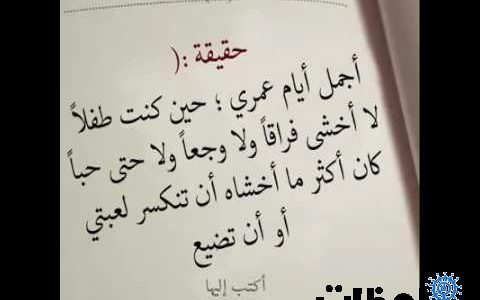 حقيقة :(
أجمل أيام عمري ؛ حين كنت طفلاً
لا أخشى فراقاً ولا وجعاً ولا حتى حباً
كان أكثر ما أخشاه أن تنكسر لعبتي
أو أن تضيع
أكتب إليها